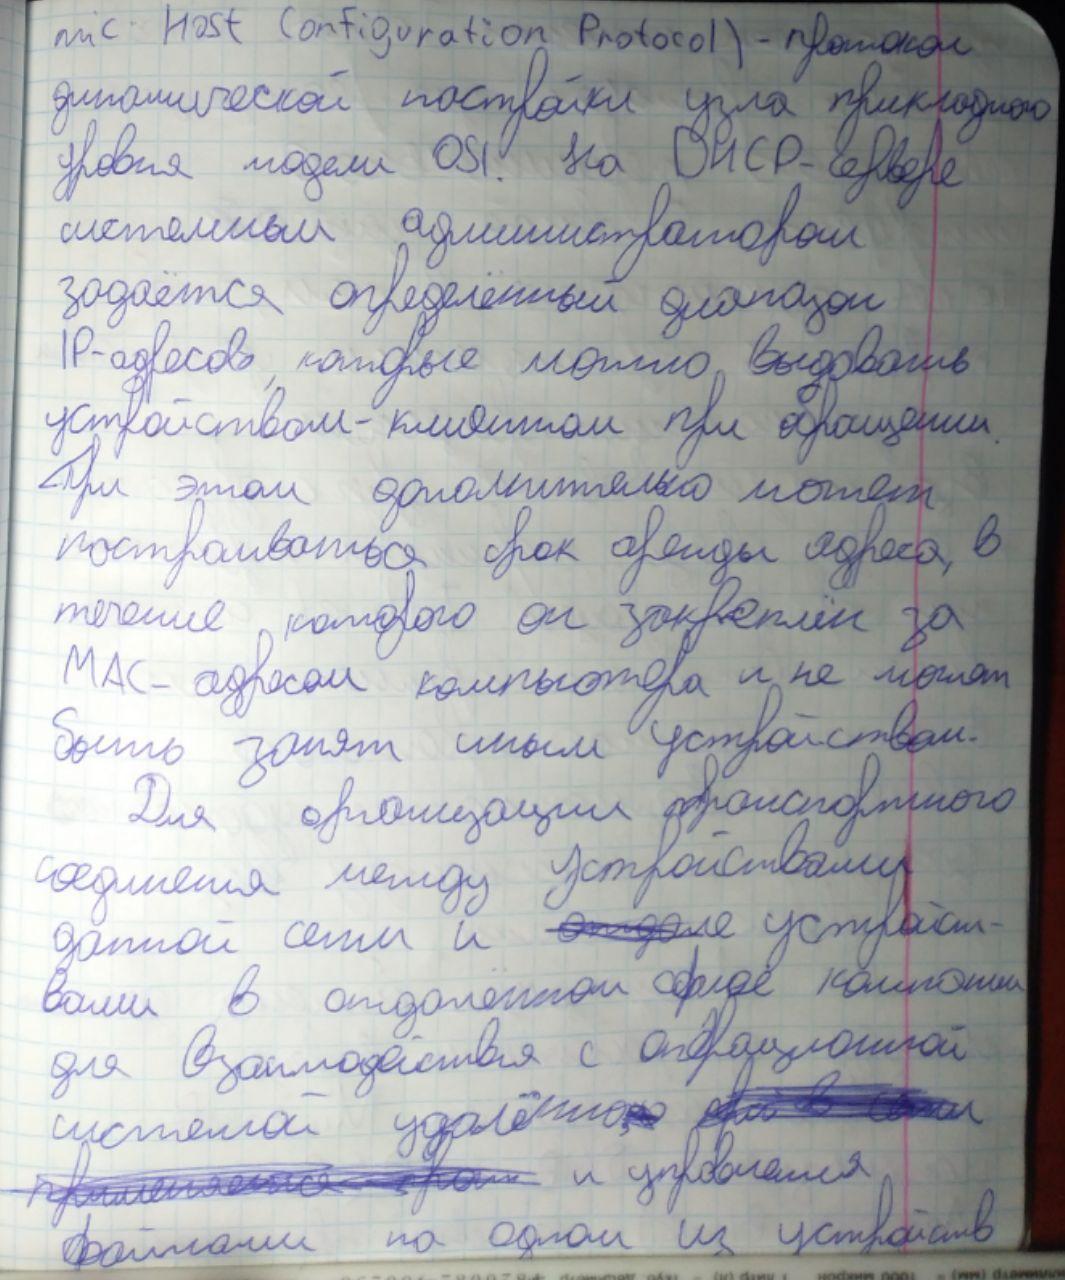 mic Host Configuration Protocol) - протокол
динамической настройки узла прикладного
уровня модели OSI. На DHCP-сервере
системным администратором
задаётся определённый диапазон
IP-адресов, которые можно выдавать
устройствам-клиентам при обращении.
При этом дополнительно может
настраиваться срок аренды адреса, в
течение которого он закреплён за
MAC-адресом компьютера и не может
быть занят иным устройством.
Для организации транспортного
соединения между устройствами
данной сети и устройст-
вами в отдалённом офисе компании
для взаимодействия с операционной
системой удалённо
и управления
файлами на одном из устройств